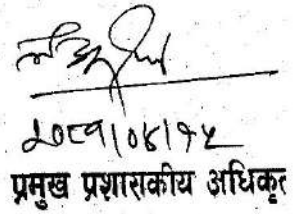 २०८१/०४/१५
प्रमुख प्रशासकीय अधिकृत